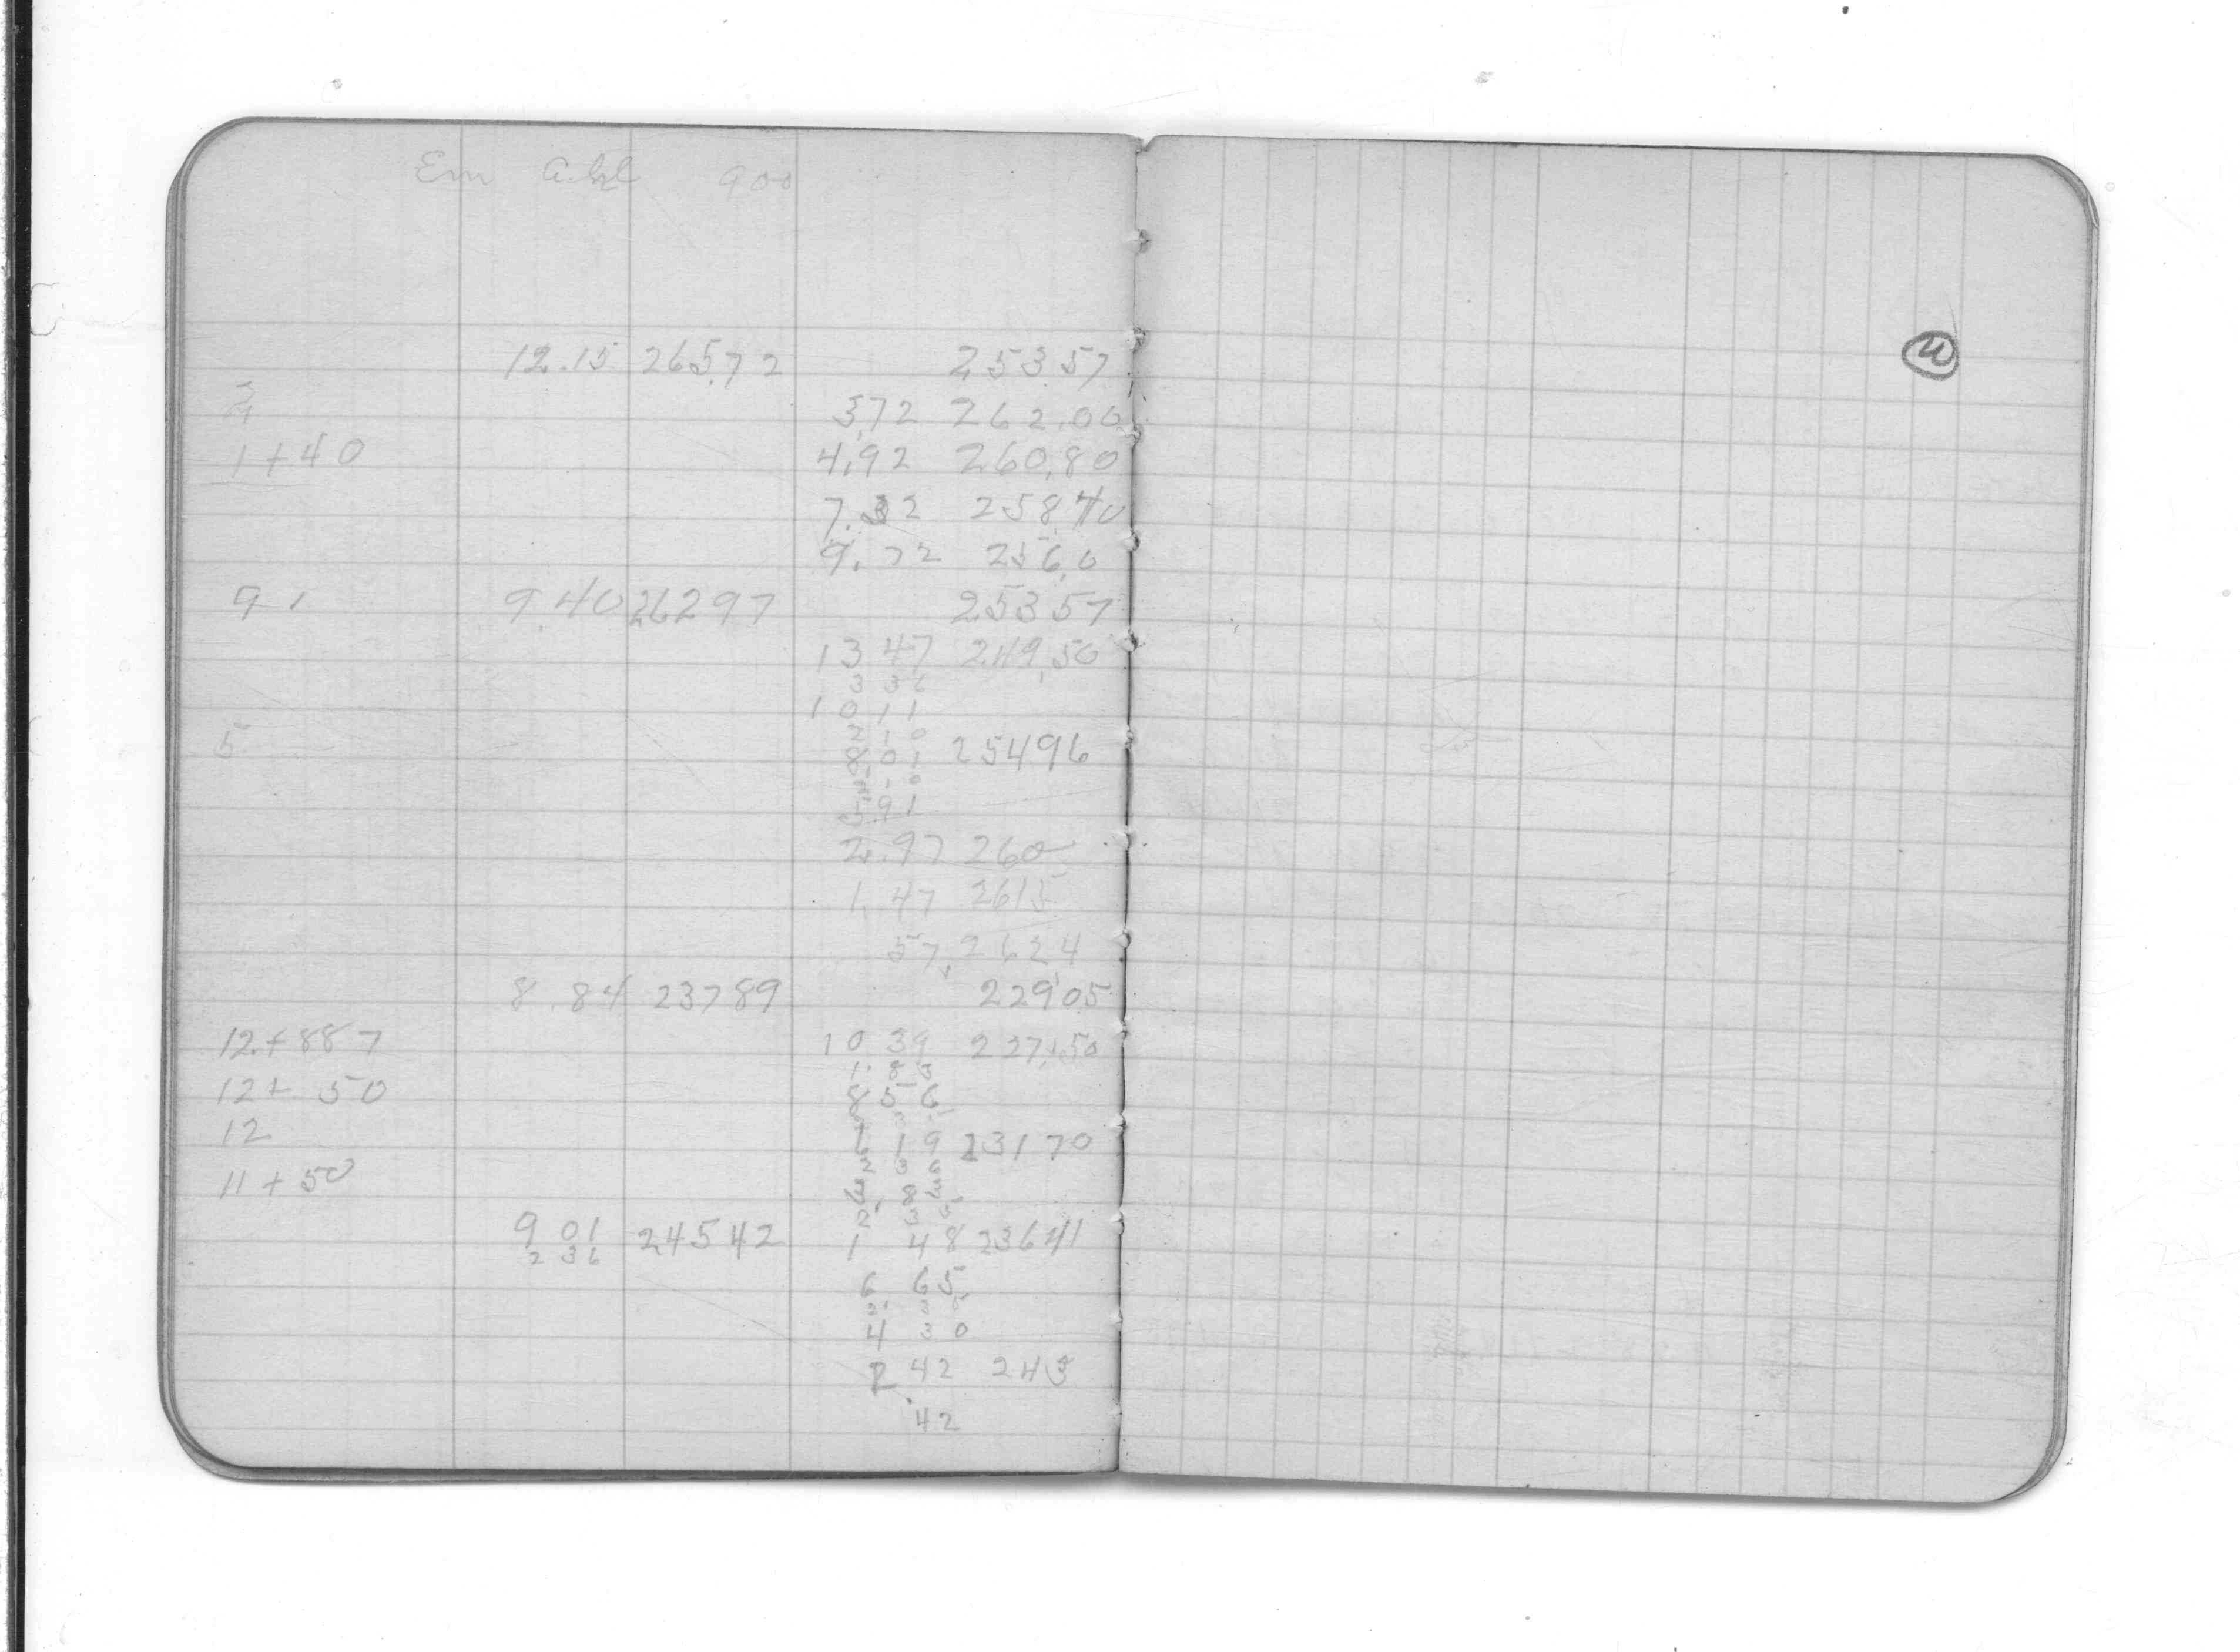 Em
12.15 265.72 253.57
3.72 262.00
1+40 4.92 260.80
7.32 258.40
9.72 256.0
9 9.40 26297 253.57
13 47 249.50
3 36
10 11
2 10
5 8 01 25496
2 10
5 91
2.97 260
1.47 2615
57 262 4
8.84 23789 229.05
12+887 10 39 227.50
1 83
12+50 8 56
12 6 19 23170
2 36
11+50 3 83
2 35
9 01 24542 1 48 23641
2 36
6 65
2 35
4 30
2 42 243
.42